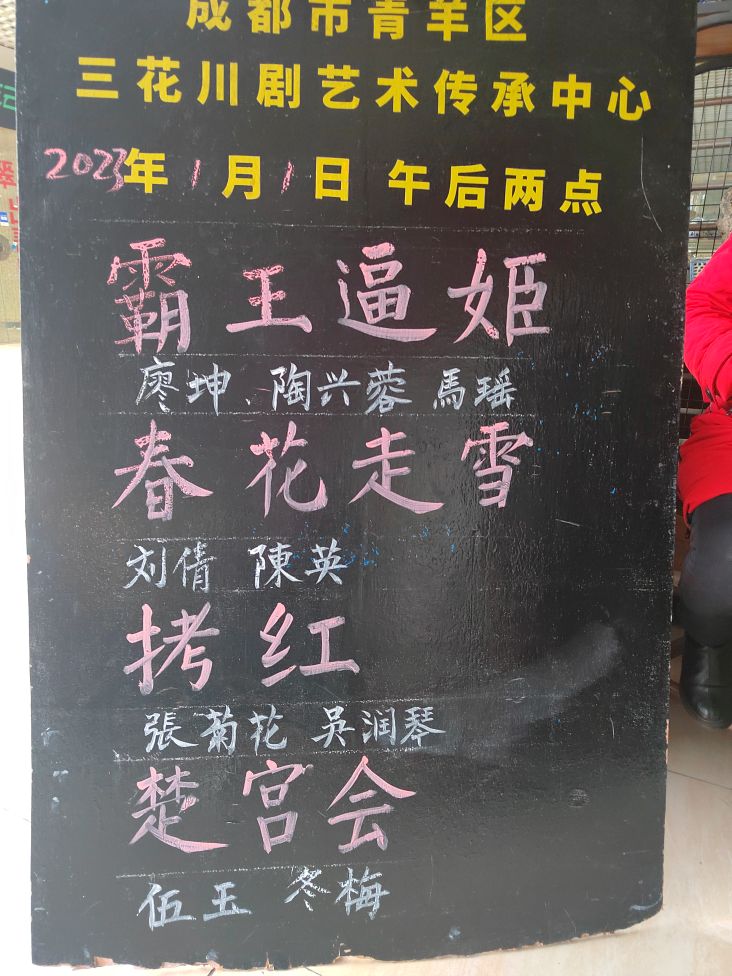 成都市青羊区
三花川剧艺术传承中心
2023年1月1日 午后两点
霸王逼姬
廖坤、陶兴蓉 馬瑶
春花走雪
刘倩 陳英
拷红
張菊花 吳润琴
楚宫会
伍玉 冬梅